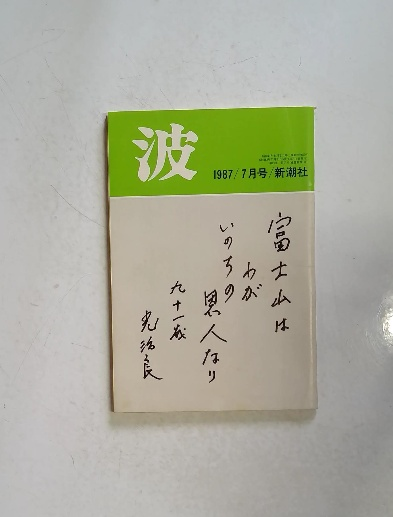 波
1987/7月号/新潮社
富士山は
わが
いのちの
恩人なり
九十一歳
光治良